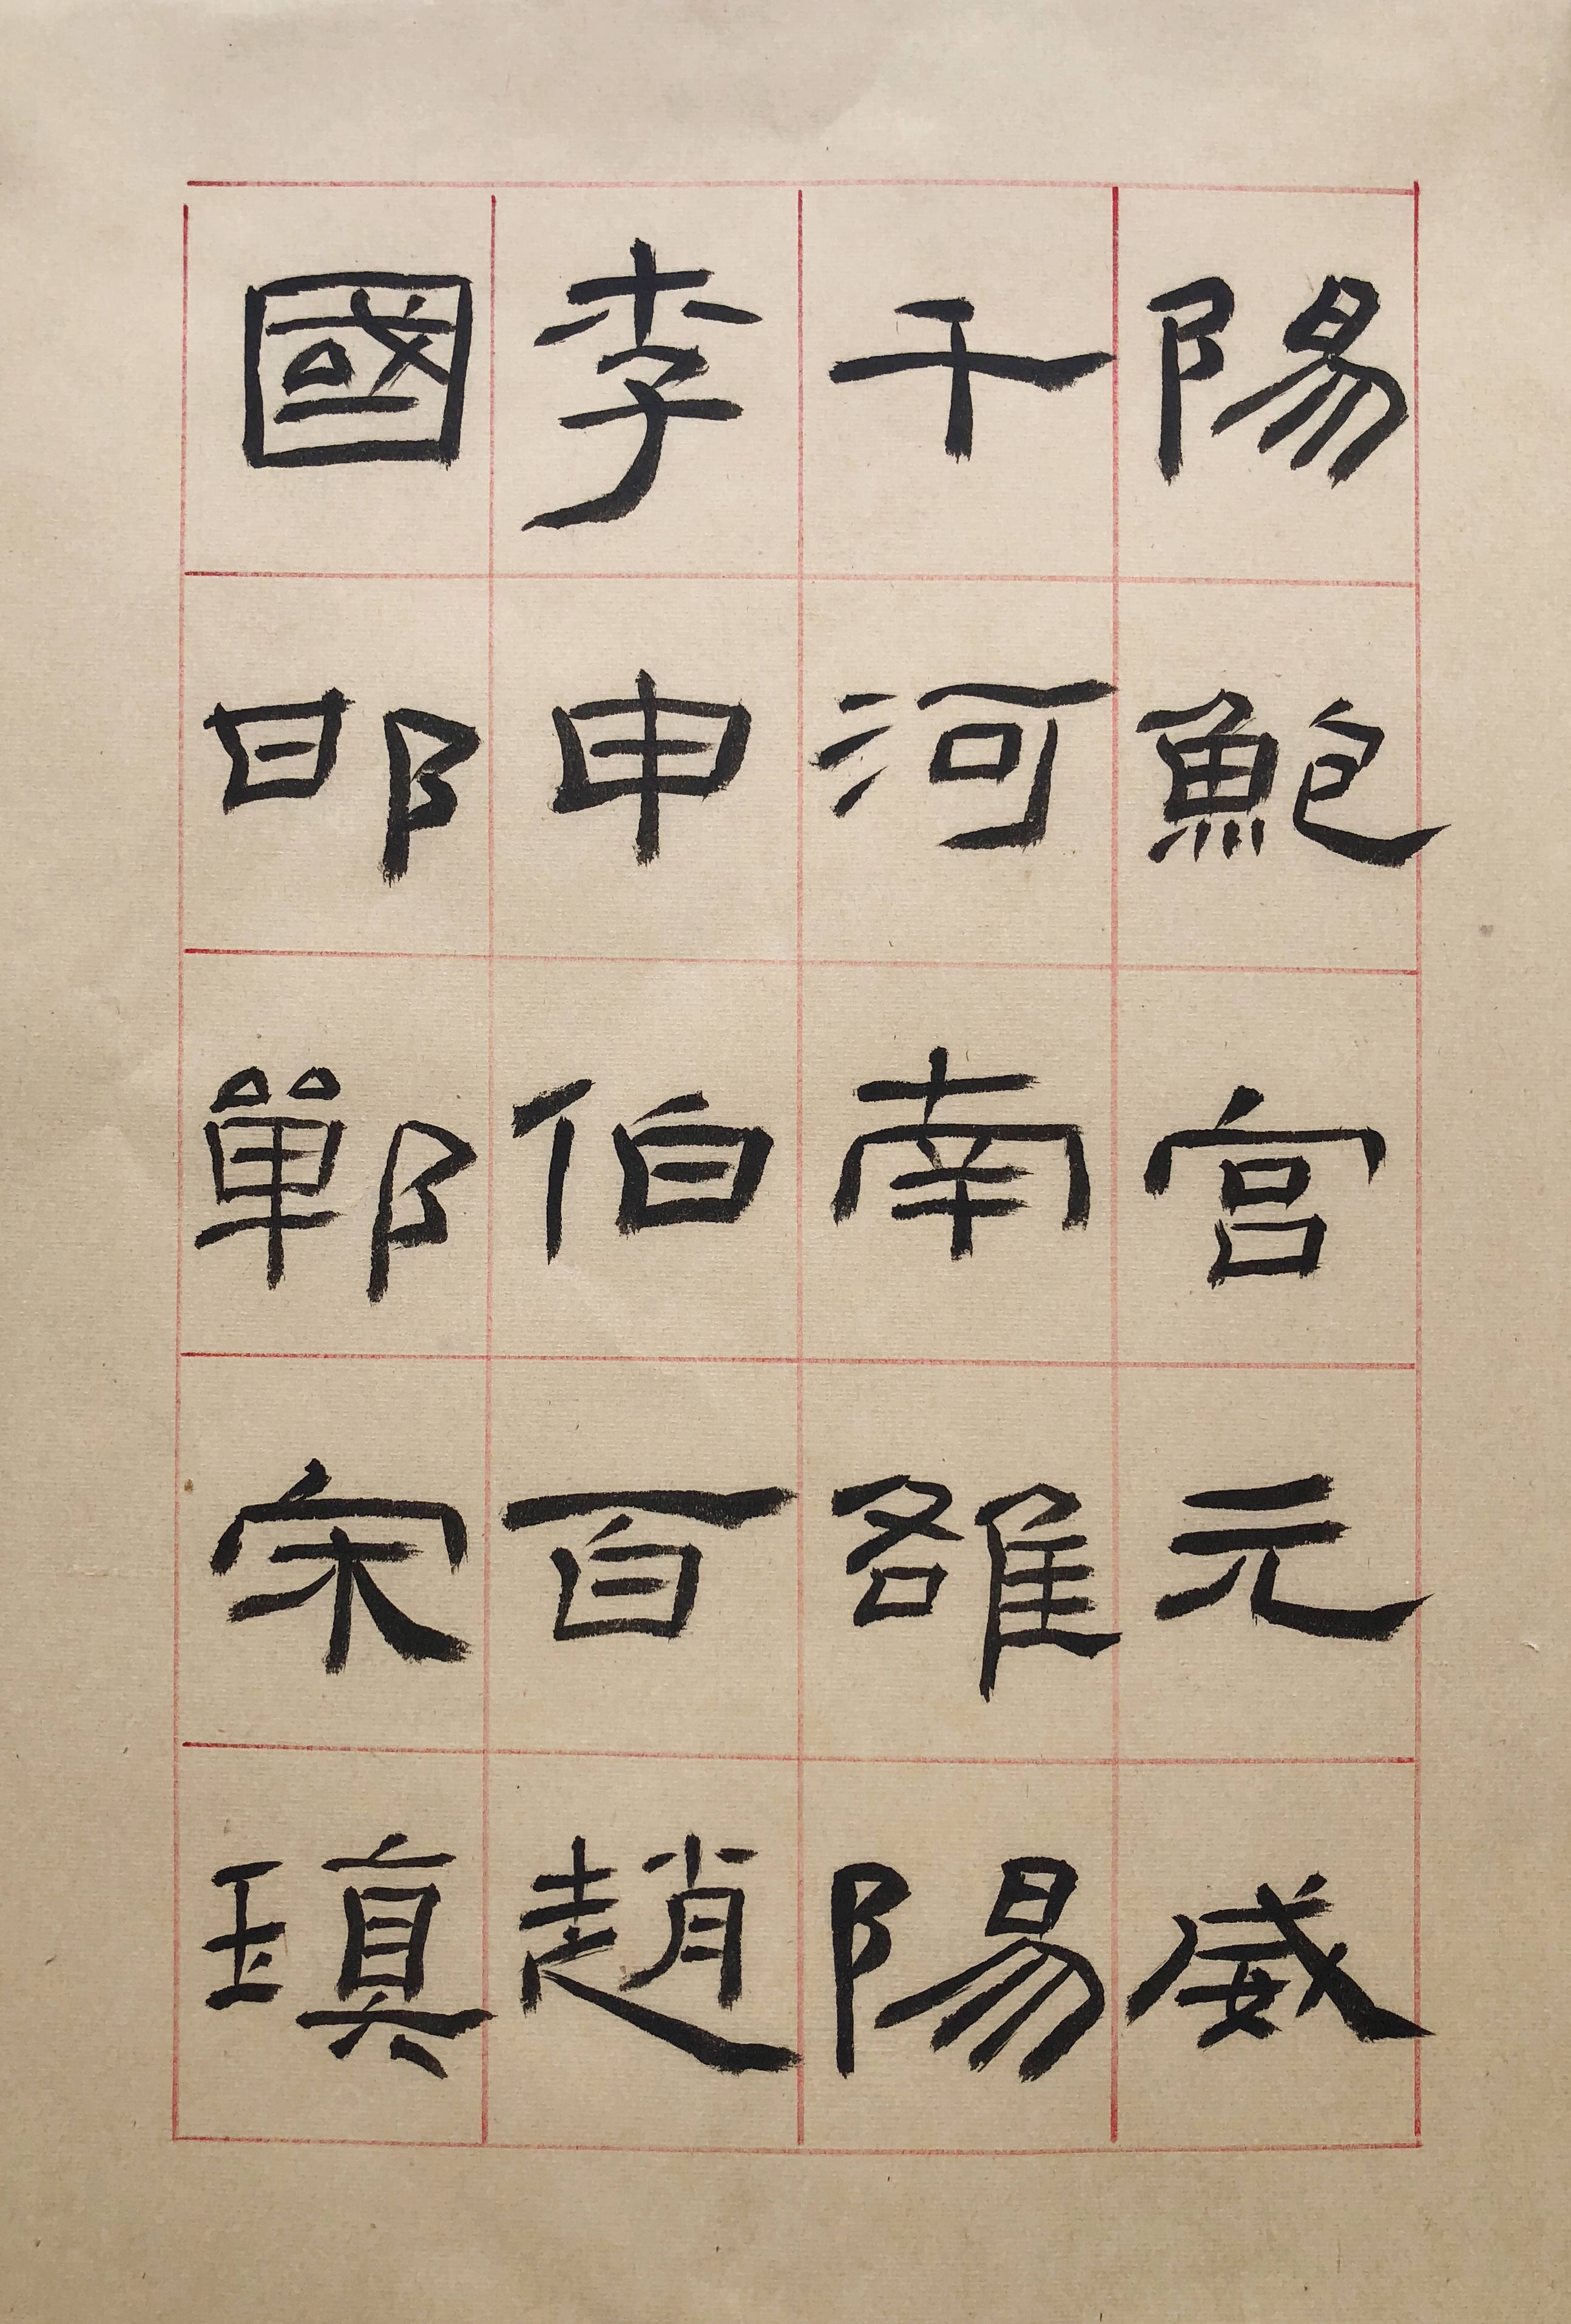 陽鮑宮元威
千河南雒陽
李申伯百趙
國邯鄲宋瑱